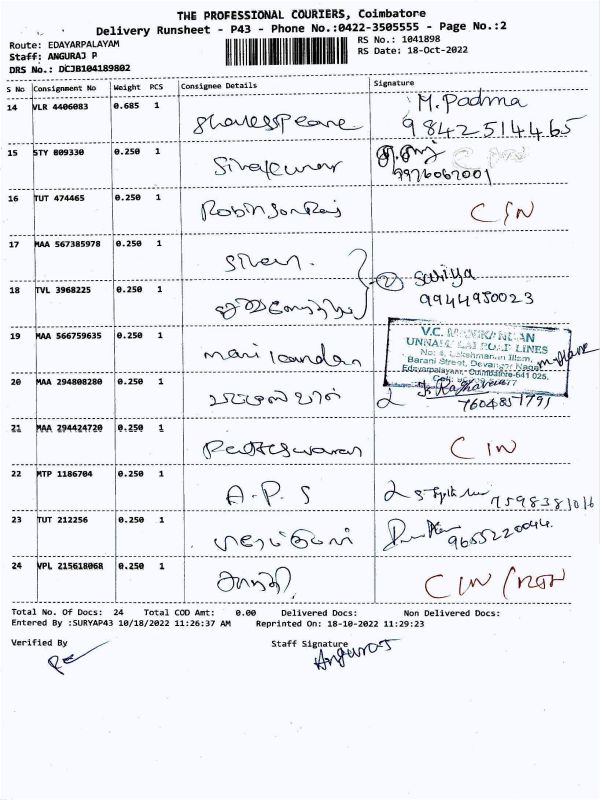 THE PROFESSIONAL COURIERS, Coimbatore
Delivery Runsheet - P43 - Phone No.:0422-3505555 - Page No.:2
Route: EDAYARPALAYAM
RS No.: 1041898
Staff: ANGURAJ P
RS Date: 18-Oct-2022
DRS No.: DCJB104189802
S No Consignment No Weight PCS Consignee Details Signature
14 VLR 4406083 0.685 1 Shakesspeare M. Padma
9842514465
15 STY 809330 0.250 1 Sivakumar
16 TUT 474465 0.250 1 Robinson Raj C IN
17 MAA 567385978 0.250 1 Siven.
18 TVL 3968225 0.250 1 Suriya
9944950023
19 MAA 566759635 0.250 1 manikandan
V.C. MANIKANDAN
ROAD LINES
No: 4, Lakshmanan Illam,
Barani Street, Devangar Nagar,
Edayarpalayam, Coimbatore-641 025.
20 MAA 294808280 0.250 1 2
7604851791
21 MAA 294424720 0.250 1 C IN
22 MTP 1186704 0.250 1 A.P.S 2
7598381016
23 TUT 212256 0.250 1
9655220044
24 VPL 215618068 0.250 1 C IN /
Total No. Of Docs: 24 Total COD Amt: 0.00 Delivered Docs: Non Delivered Docs:
Entered By :SURYAP43 10/18/2022 11:26:37 AM Reprinted On: 18-10-2022 11:29:23
Verified By Staff Signature
Anguraj